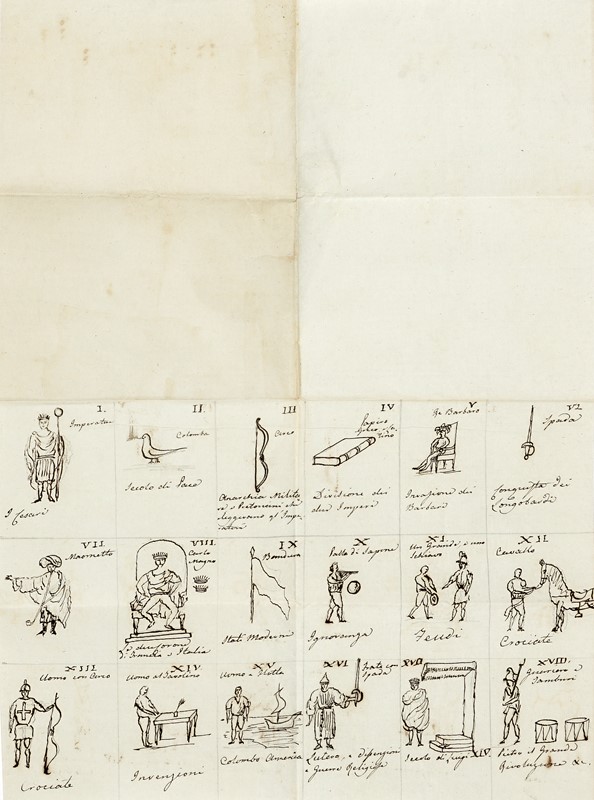 I.
Imperator
I Cesari
II.
Colomba
Secolo di Pace
III
Arco
Anarchia Milita
re i Pretoriani che
leggevano gl'Impe
ratori
IV
Divisione dei
due Imperi
V.
Re Barbaro
Invasione dei
Barbari
VI
Spada
Conquista dei
Longobardi
VII
Maometto
VIII.
Carlo
Magno
Francia e Italia
IX
Bandiera
Stati Moderni
X
Palla di Sapone
Ignoranza
XI
Un Grande e uno
Schiavo
Feudi
XII
Cavallo
Crociate
XIII.
Uomo con Arco
Crociate
XIV.
Uomo al Tavolino
Invenzioni
XV
Uomo e Flotta
Colombo America
XVI
Frate con
Spada
Lutero, e
e Guerre Religiose
XVII
Secolo di Luigi XIV.
XVIII.
Guerriero e
Tamburi
Pietro il Grande
Rivoluzione &c.